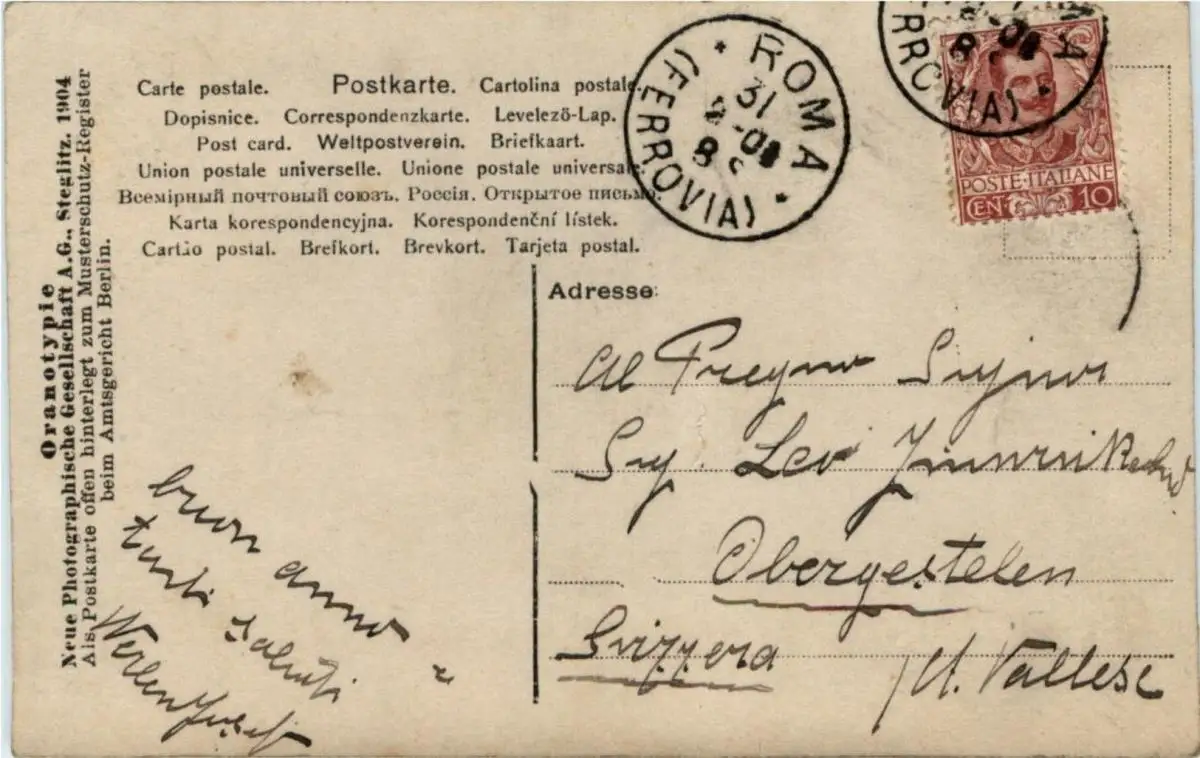 Carte postale. Postkarte. Cartolina postale.
Dopisnice. Correspondenzkarte. Levelező-Lap.
Post card. Weltpostverein. Briefkaart.
Union postale universelle. Unione postale universale.
Всемірный почтовый союзъ. Россія. Открытое письмо.
Karta korespondencyjna. Korespondenční lístek.
Cartão postal. Brefkort. Brevkort. Tarjeta postal.
ROMA
31
08
8 S
(FERROVIA)
POSTE ITALIANE
CENT 10
Oranotypie
Neue Photographische Gesellschaft A.G., Steglitz. 1904
Als Postkarte offen hinterlegt zum Musterschutz-Register
beim Amtsgericht Berlin.
Adresse:
Al Pregmo Signor
Sig. Leo
Obergestelen
Svizzera Ct. Vallese
buon anno e
tanti saluti
Werlen Josef